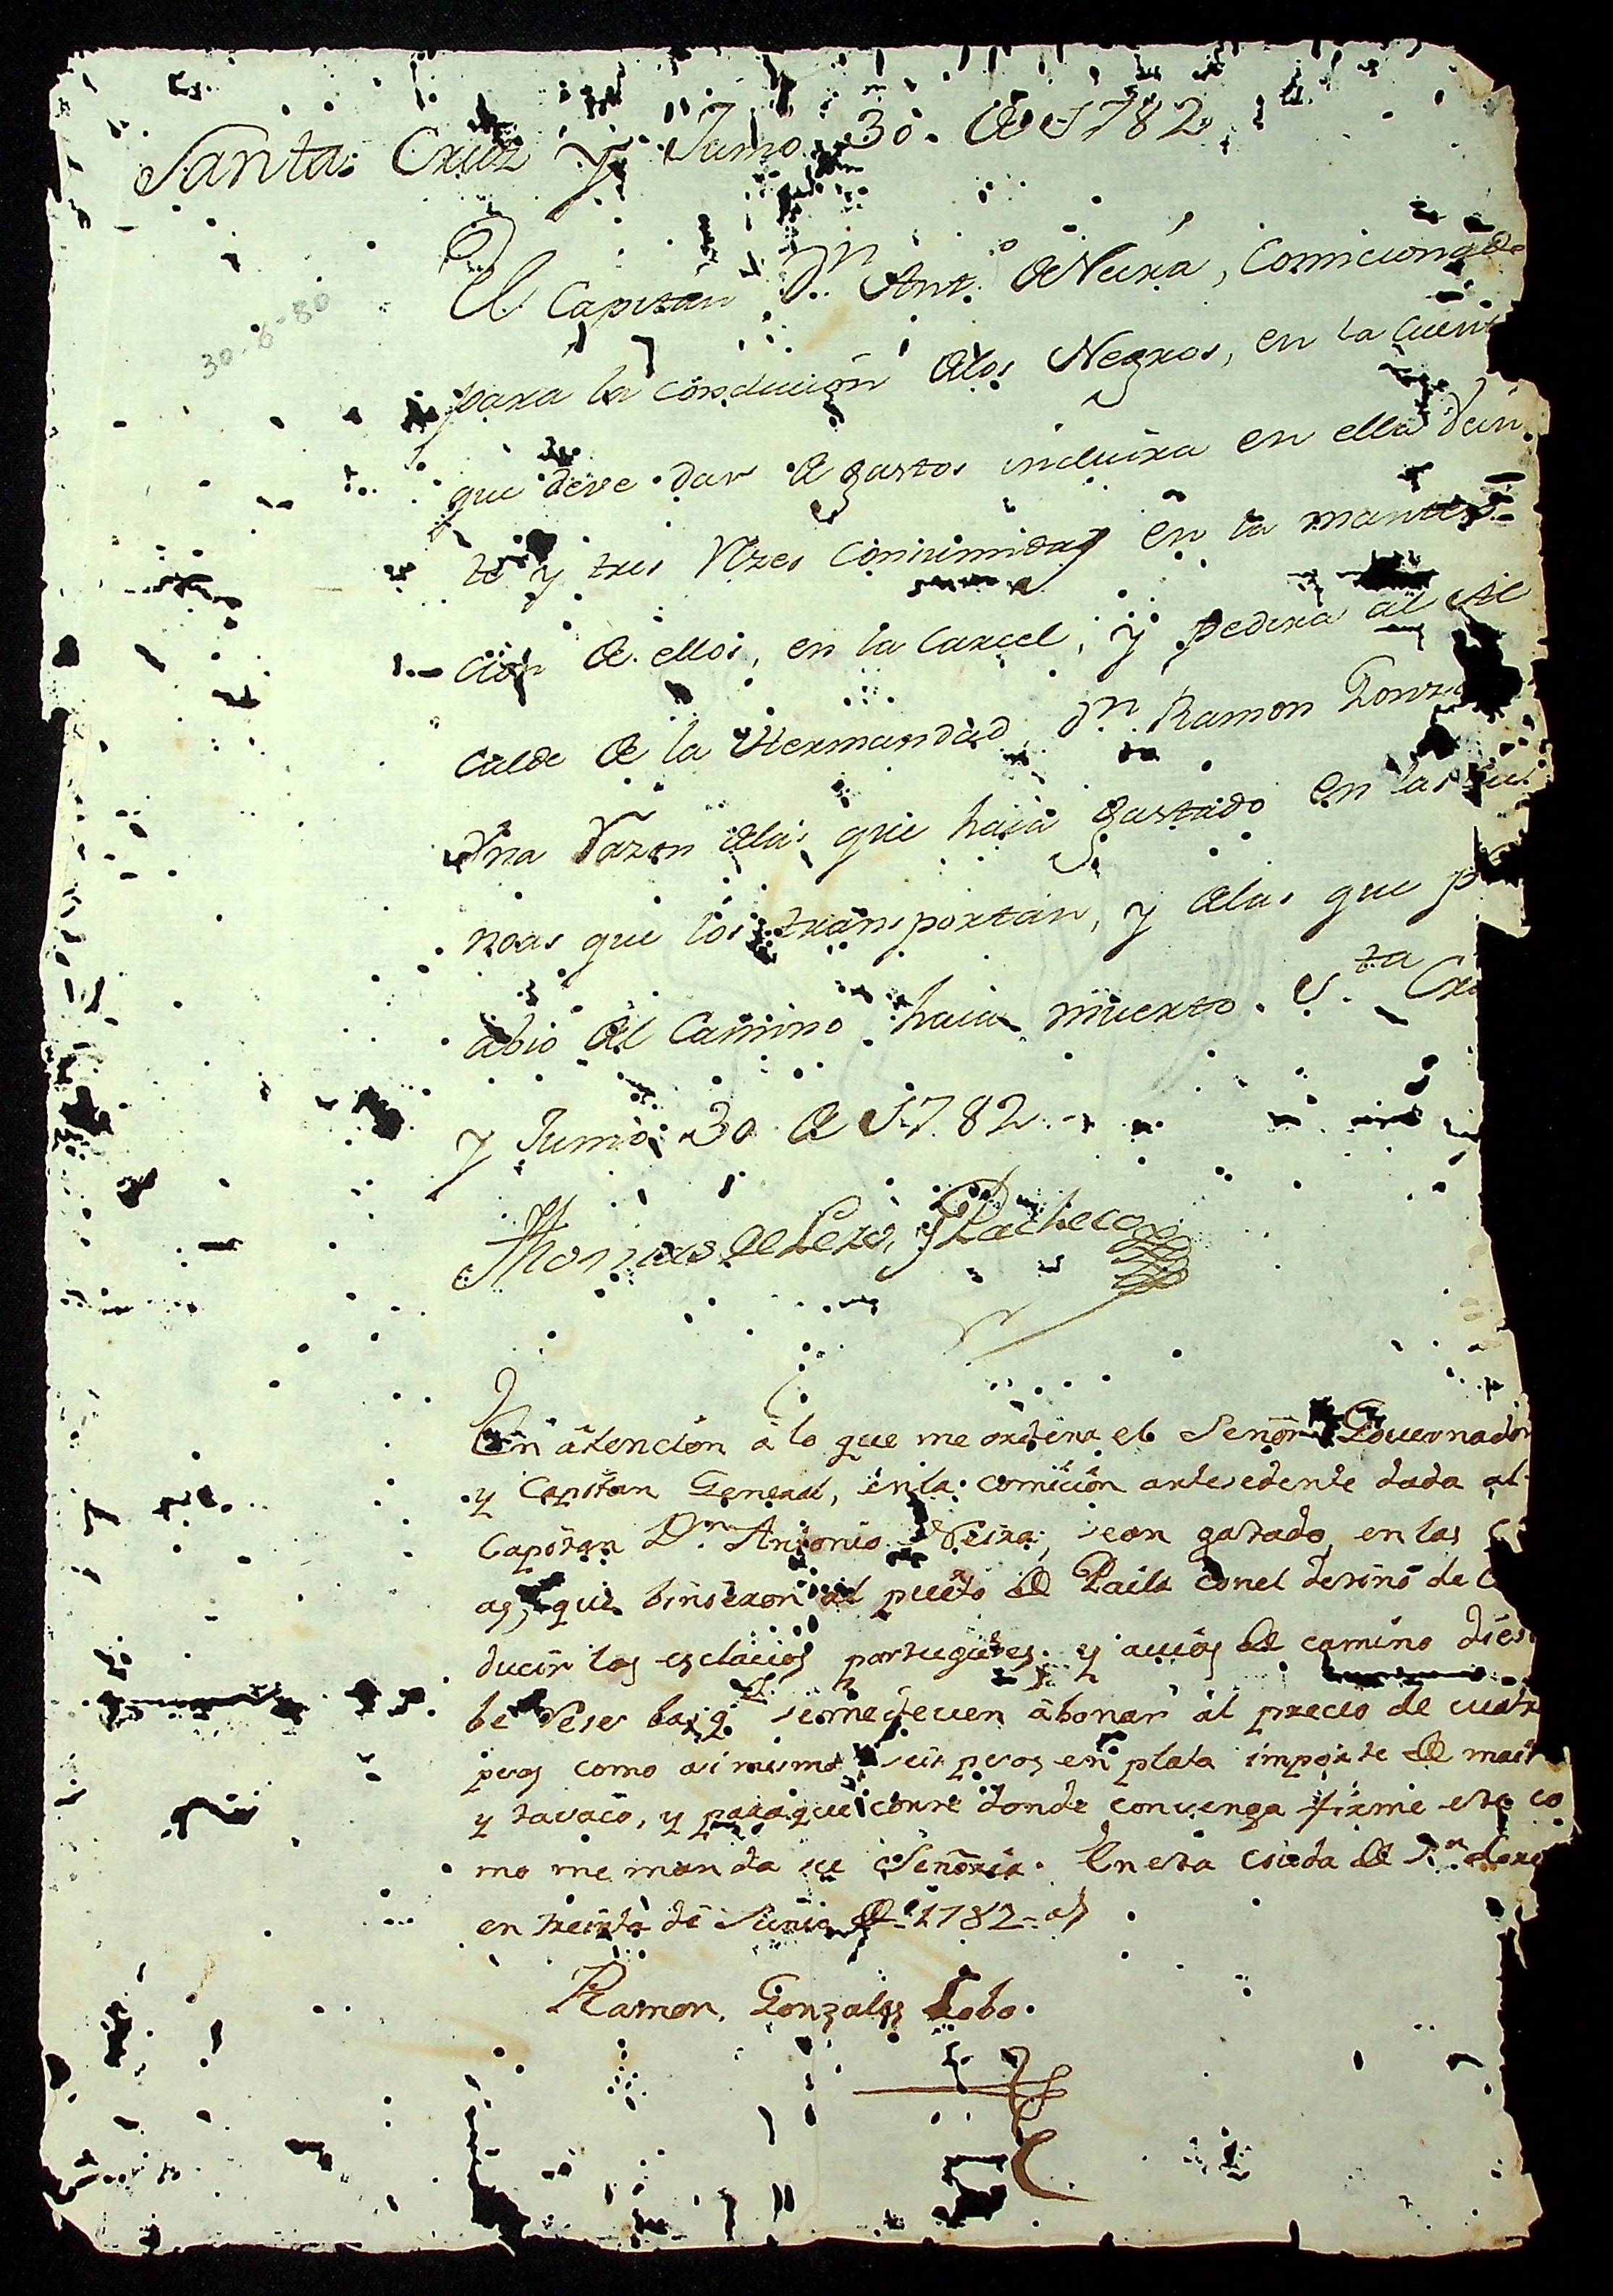 Santa Cruz y Junio 30. de 1782
30-6-80
El Capitan Dn. Anto. de Neira, Comicionado
para la conducion delos Negros, en la Cuent
que deve dar de gastos incluira en ella vein
te y tres Rzes consumidas en la manten
cion de ellos, en la Carcel, y pedira al Al
calde de la Hermandad, Dn. Ramon Gonza
Vna Razon delas que haia gastado en las
noas que los transportan, y delas que p
abio del Camino haia muerto. Sta Cru
y Junio 30 de 1782
Thomas de Lezo, y Pacheco
En atencion a lo que me ordena el Señor Governador
y Capitan General, enla comicion antesedente dada al
Capitan Dn. Antonio Neira, sean gastado en las
as, que binieron al pueto de Paila conel destino de
ducir los esclavos portugueses y avios de camino dies
be Reses las q. seme deven abonar al precio de cuatr
pesos como asimismo seis pesos en plata importe de mais
y tavaco, y paraque conste donde convenga firme este co
mo me manda su Señoria. En esta ciuda de Sn. Lore
en treinta de Junio de 1782 as
Ramon, Gonzales Lobo.